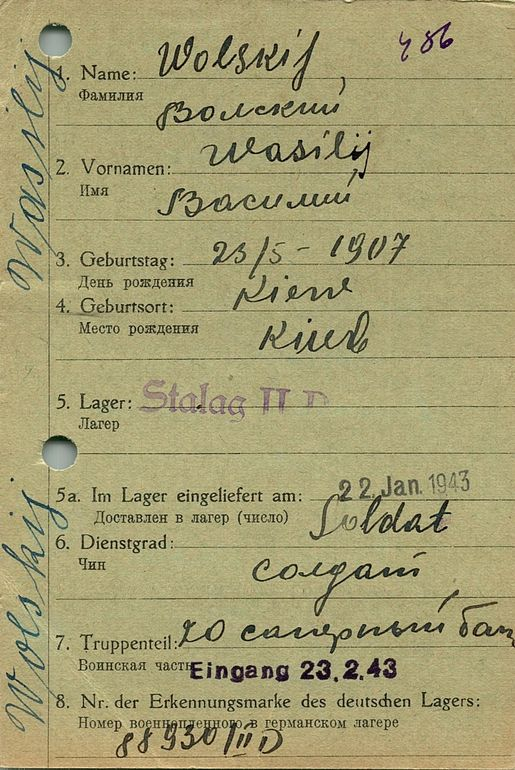 486
1. Name: Wolskij
Фамилия
Волский
2. Vornamen: Wasilij
Имя
Василий
3. Geburtstag: 23/5 - 1907
День рождения
4. Geburtsort: Kiew
Место рождения
Киев
5. Lager: Stalag II D
Лагер
5a. Im Lager eingeliefert am: 22. Jan. 1943
Доставлен в лагер (число)
6. Dienstgrad: Soldat
Чин
солдат
7. Truppenteil: 70 саперный бат
Воинская часть
Eingang 23.2.43
8. Nr. der Erkennungsmarke des deutschen Lagers:
Номер военнопленного в германском лагере
88930/II D
Wolskij Wasilij